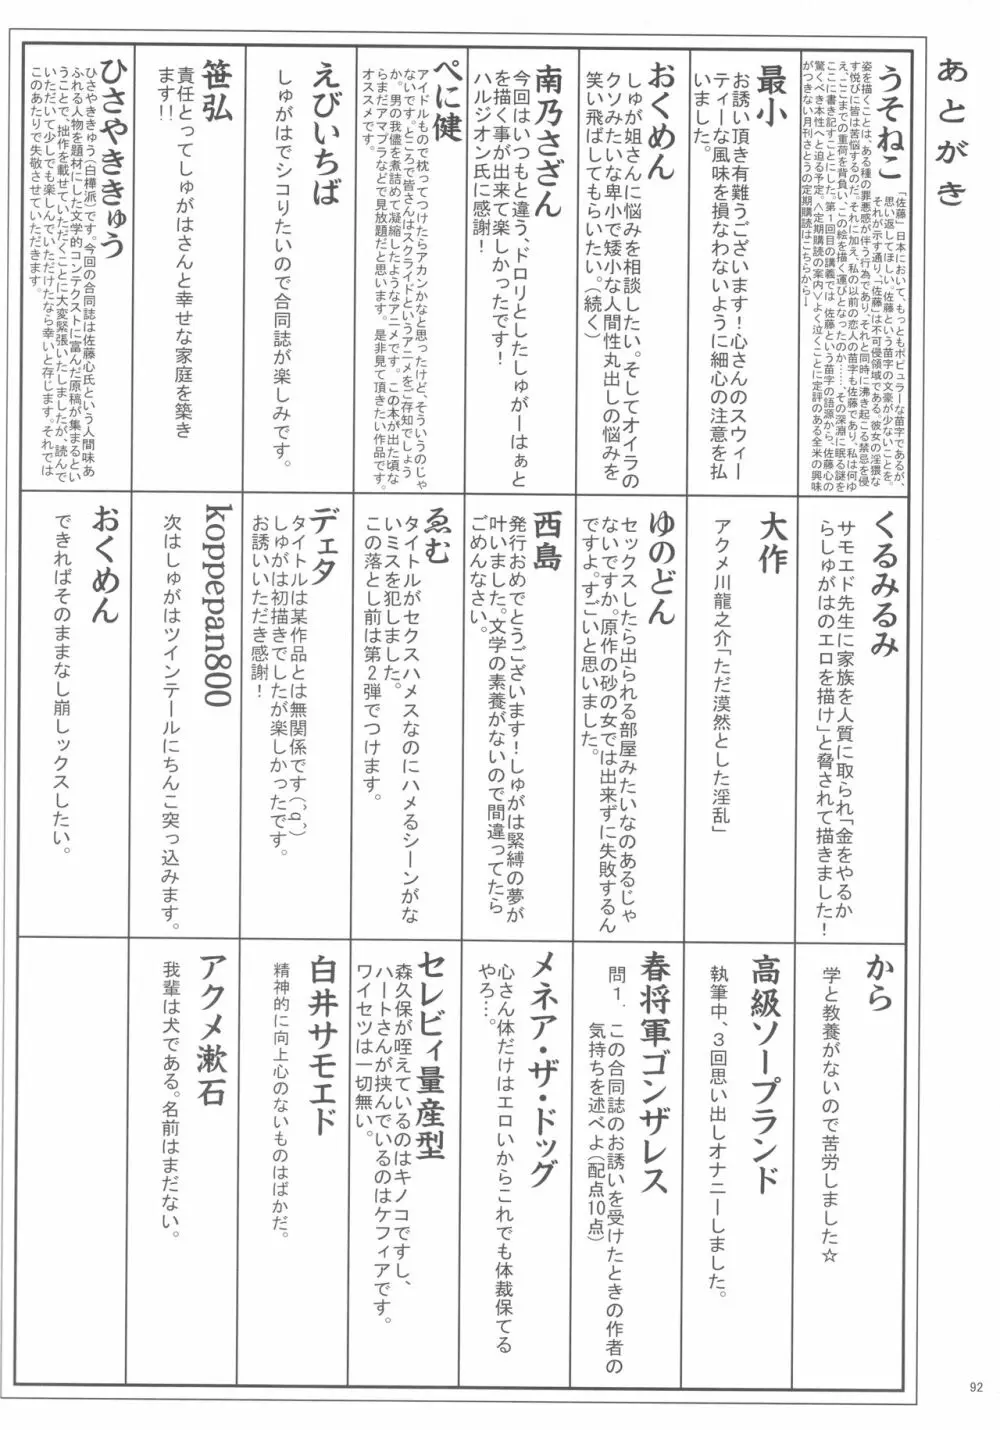 あとがき
うそねこ
「佐藤」日本において、もっともポピュラーな苗字であるが、
思い返してほしい。佐藤という苗字の文豪が少ないことを。
それが示す通り、「佐藤」は不可侵領域である。彼女の淫猥な
姿を描くことは、ある種の罪悪感が伴う行為であり、それと同時に沸き起こる禁忌を侵
す悦びに皆は苦悩するのだ。それに加え、私の以前の恋人の苗字も佐藤であり、私は何ゆ
え、ここまでの重荷を背負い、この絵を描く運びとなったのか……、その深淵に眠る謎を
ここに書き記すことにした。第1回目の講義では、佐藤という苗字の語源から、佐藤心の
驚くべき本性へと迫る予定。＜定期購読の案内＞よく泣くことに定評のある全米の興味
がつきない月刊さとうの定期購読はこちらから↓
最小
お誘い頂き有難うございます！心さんのスウィー
ティーな風味を損なわないように細心の注意を払
いました。
おくめん
しゅが姐さんに悩みを相談したい。そしてオイラの
クソみたいな卑小で矮小な人間性丸出しの悩みを
笑い飛ばしてもらいたい。（続く）
南乃さざん
今回はいつもと違う、ドロリとしたしゅがーはぁと
を描く事が出来て楽しかったです！
ハルジオン氏に感謝！
ぺに健
アイドルもので枕ってつけたらアカンかなと思ったけど、そういうのじゃ
ないです。ところで皆さんはスクライドというアニメをご存知でしょう
か。男の我儘を煮詰めて凝縮したようなアニメです。この本が出た頃な
らまだアマプラなどで見放題だと思います。是非見て頂きたい作品です。
オススメです。
えびいちば
しゅがはでシコりたいので合同誌が楽しみです。
笹弘
責任とってしゅがはさんと幸せな家庭を築き
ます！！
ひさやききゅう
ひさやききゅう（白樺派）です。今回の合同誌は佐藤心氏という人間味あ
ふれる人物を題材にした文学的コンテクストに富んだ原稿が集まるとい
うことで、拙作を載せていただくことに大変緊張いたしましたが、読んで
いただいて少しでも楽しんでいただけたなら幸いと存じます。それでは
このあたりで失敬させていただきます。
くるみるみ
サモエド先生に家族を人質に取られ「金をやるか
らしゅがはのエロを描け」と脅されて描きました！
大作
アクメ川龍之介「ただ漠然とした淫乱」
ゆのどん
セックスしたら出られる部屋みたいなのあるじゃ
ないですか。原作の砂の女では出来ずに失敗するん
ですよ。すごいと思いました。
西島
発行おめでとうございます！しゅがは緊縛の夢が
叶いました。文学の素養がないので間違ってたら
ごめんなさい。
ゑむ
タイトルがセクスハメスなのにハメるシーンがな
いミスを犯しました。
この落とし前は第2弾でつけます。
デェタ
タイトルは某作品とは無関係です(^q^)
しゅがは初描きでしたが楽しかったです。
お誘いいただき感謝！
koppepan800
次はしゅがはツインテールにちんこ突っ込みます。
おくめん
できればそのままなし崩しックスしたい。
から
学と教養がないので苦労しました☆
高級ソープランド
執筆中、3回思い出しオナニーしました。
春将軍ゴンザレス
問1. この合同誌のお誘いを受けたときの作者の
気持ちを述べよ（配点10点）
メネア・ザ・ドッグ
心さん体だけはエロいからこれでも体裁保てる
やろ…。
セレビィ量産型
森久保が咥えているのはキノコですし、
ハートさんが挟んでいるのはケフィアです。
ワイセツは一切無い。
白井サモエド
精神的に向上心のないものはばかだ。
アクメ漱石
我輩は犬である。名前はまだない。
92